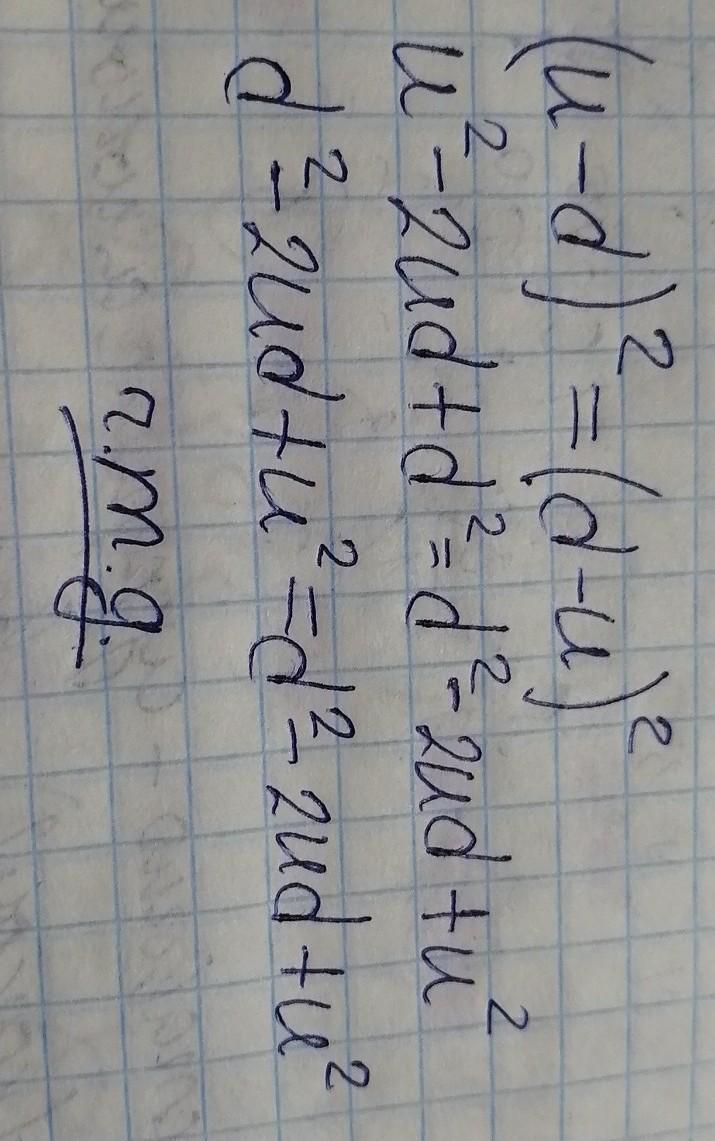 (u-d)² = (d-u)²
u² - 2ud + d² = d² - 2ud + u²
d² - 2ud + u² = d² - 2ud + u²
r.m.g.